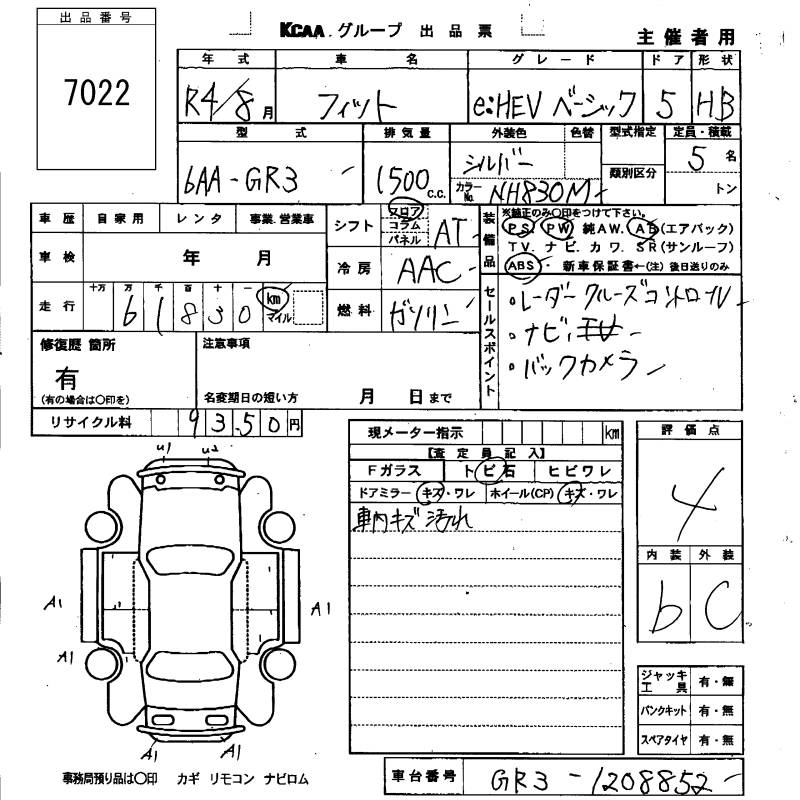 出品番号
7022
KCAA.グループ 出品票
主催者用
年式 車名 グレード ドア 形状
R4/8月 フィット e:HEV ベーシック 5 HB
型式 排気量 外装色 色替 型式指定 定員・積載
6AA-GR3 1500c.c. シルバー 類別区分 5名
カラーNo. NH830M トン
車歴 自家用 レンタ 事業.営業車
車検 年 月
走行 十万 万 千 百 十 一 km
61830 マイル
シフト フロア コラム パネル AT
冷房 AAC
燃料 ガソリン
装備品 ※純正のみ〇印をつけて下さい。
PS PW 純AW. AB(エアバック)
TV. ナビ. カワ. SR(サンルーフ)
ABS・新車保証書←(注) 後日送りのみ
セールスポイント
・レーダークルーズコントロール
・ナビ,
・バックカメラ
修復歴 箇所 注意事項
有
(有の場合は〇印を) 名変期日の短い方 月 日まで
リサイクル料 9350円
現メーター指示 km
【査定員記入】
Fガラス トビ石 ヒビワレ
ドアミラー キズ・ワレ ホイール(CP) キズ・ワレ
車内キズ 汚れ
評価点
4
内装 外装
b C
U1 U2
A1 A1
A1
A1 A1
ジャッキ工具 有・無
パンクキット 有・無
スペアタイヤ 有・無
事務局預り品は〇印 カギ リモコン ナビロム
車台番号 GR3-1208852